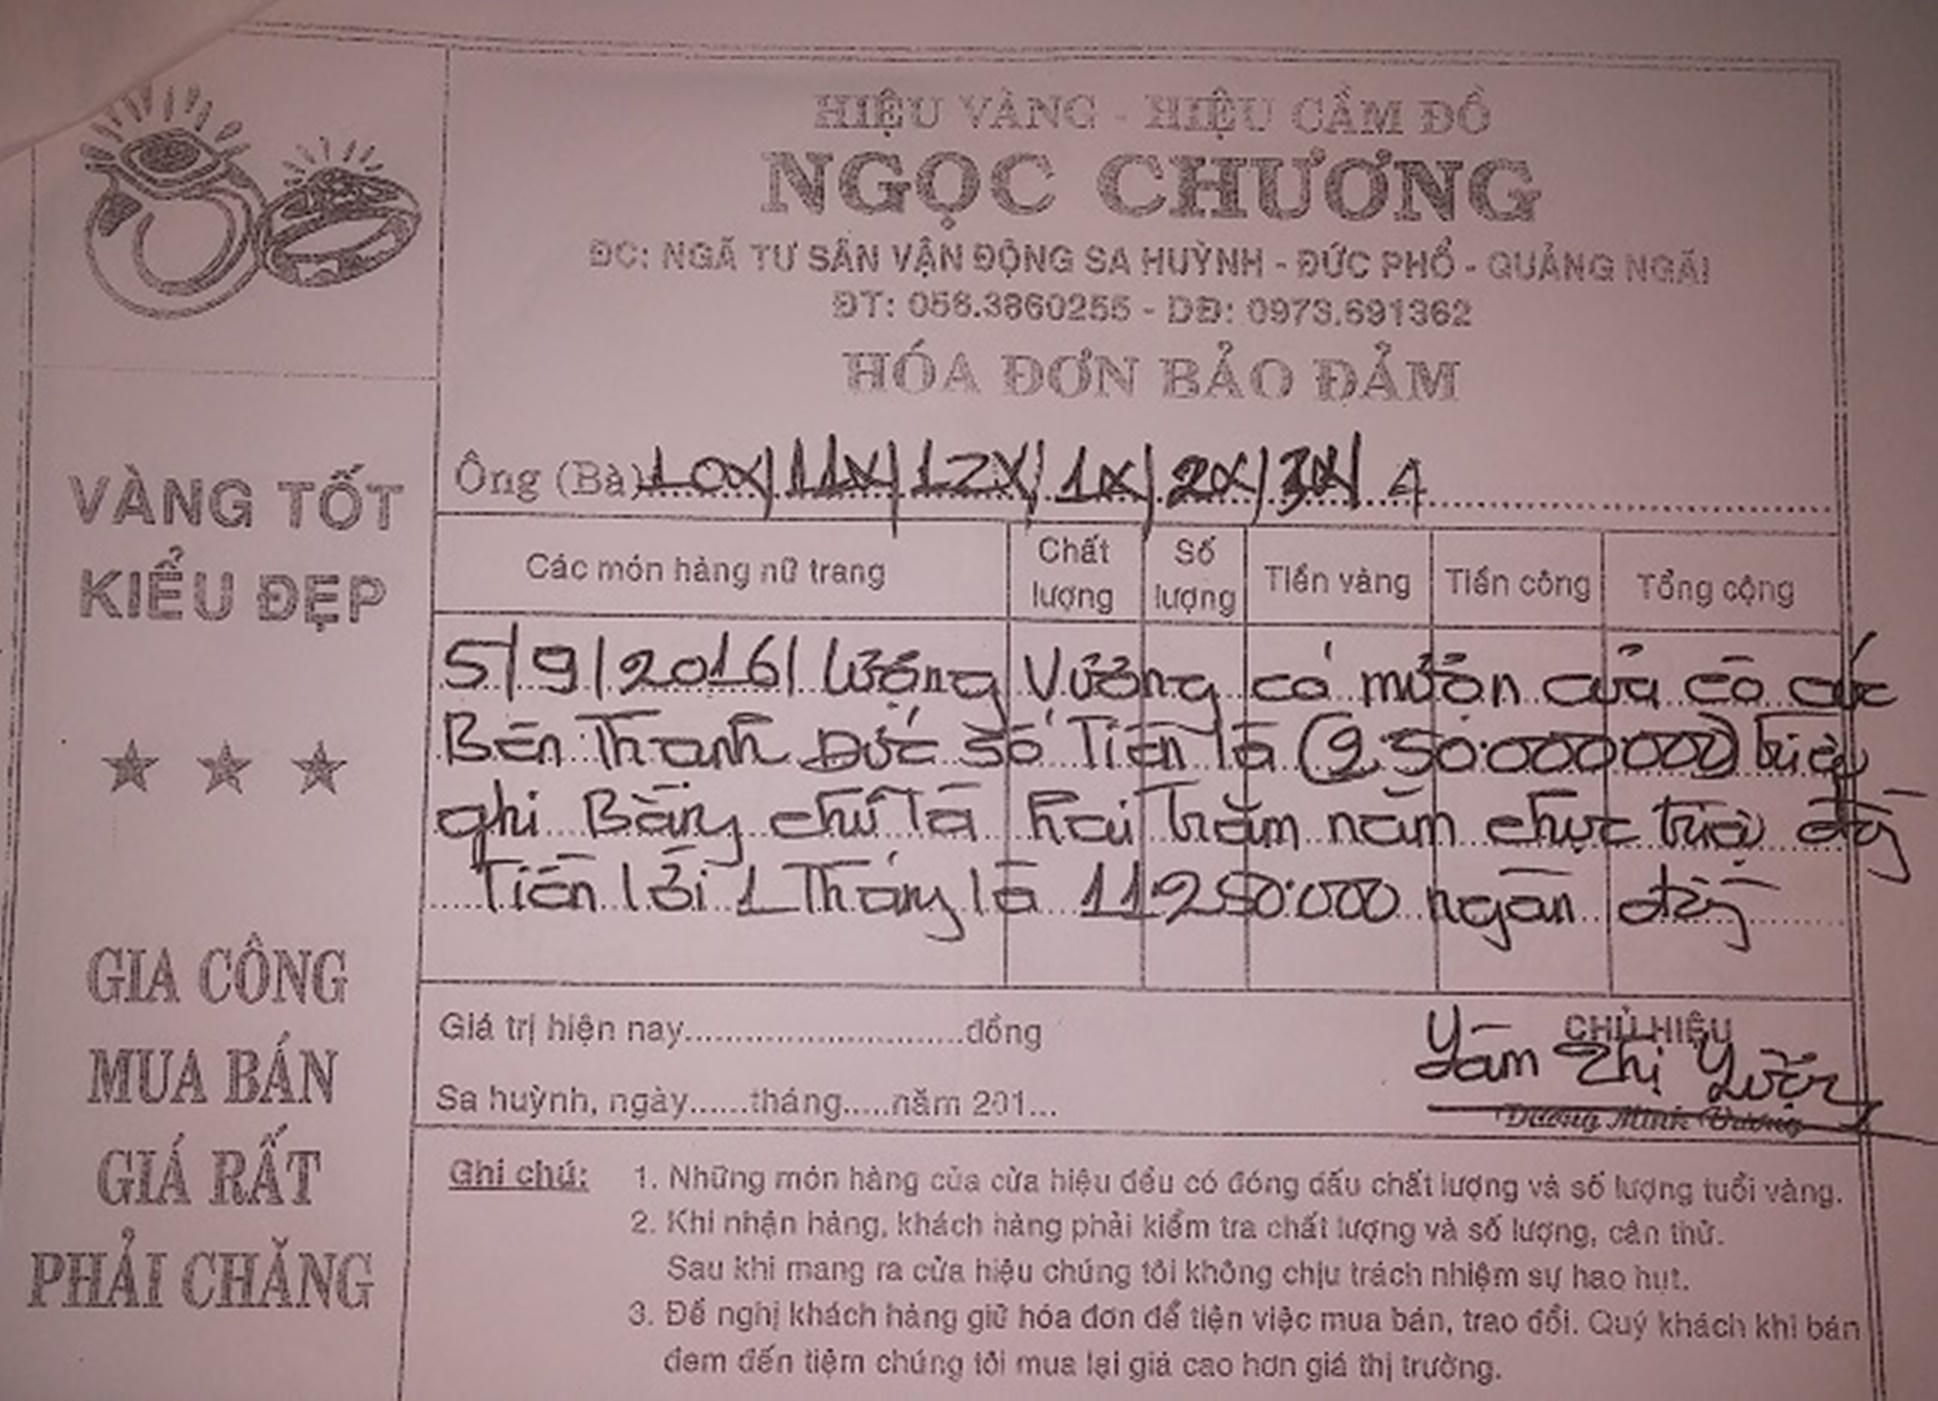 HIỆU VÀNG - HIỆU CẦM ĐỒ
NGỌC CHƯƠNG
ĐC: NGÃ TƯ SÂN VẬN ĐỘNG SA HUỲNH - ĐỨC PHỔ - QUẢNG NGÃI
ĐT: 056.3860255 - DĐ: 0973.691362
HÓA ĐƠN BẢO ĐẢM
VÀNG TỐT
KIỂU ĐẸP
GIA CÔNG
MUA BÁN
GIÁ RẤT
PHẢI CHĂNG
Ông (Bà) 10x/11x/12x/1x/2x/3x/4
Các món hàng nữ trang Chất lượng Số lượng Tiền vàng Tiền công Tổng cộng
5/9/2016/ Vương có mườn của cô
Bến Thanh Đức số Tiền là (250.000000) triệu
ghi Bằng chữ là hai trăm năm chục triệu đồng
Tiền lời 1 Tháng là 11250.000 ngàn đồng
Giá trị hiện nay............................đồng
Sa huỳnh, ngày......tháng.....năm 201...
CHỦ HIỆU
Thị
Dương Minh Vương
Ghi chú: 1. Những món hàng của cửa hiệu đều có đóng dấu chất lượng và số lượng tuổi vàng.
2. Khi nhận hàng, khách hàng phải kiểm tra chất lượng và số lượng, cân thử.
Sau khi mang ra cửa hiệu chúng tôi không chịu trách nhiệm sự hao hụt.
3. Đề nghị khách hàng giữ hóa đơn để tiện việc mua bán, trao đổi. Quý khách khi bán
đem đến tiệm chúng tôi mua lại giá cao hơn giá thị trường.